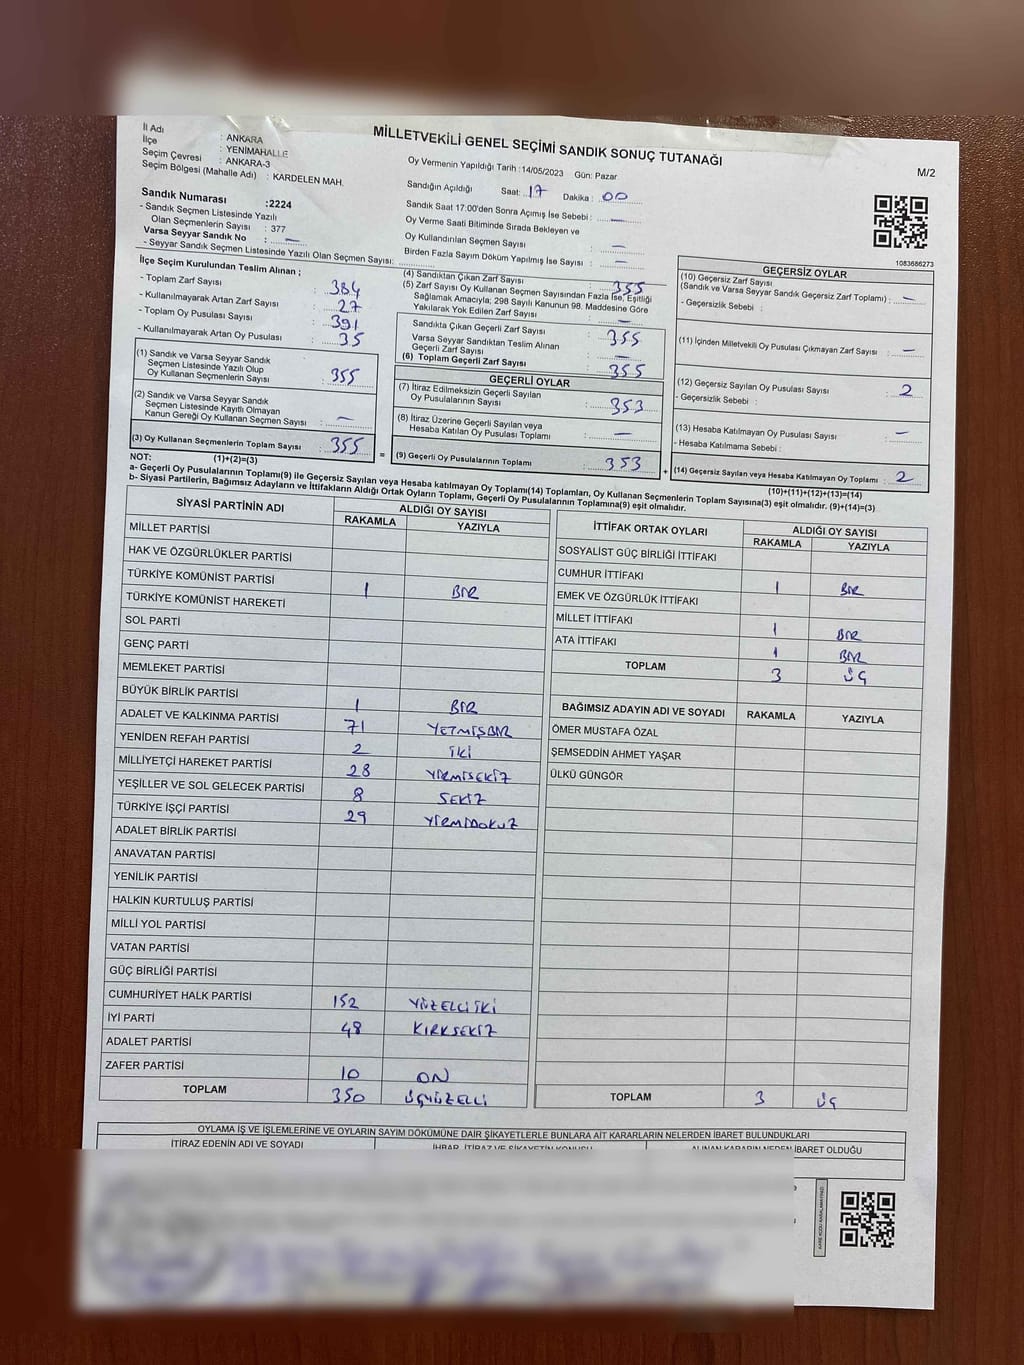 MİLLETVEKİLİ GENEL SEÇİMİ SANDIK SONUÇ TUTANAĞI
M/2
İl Adı : ANKARA
İlçe : YENİMAHALLE
Seçim Çevresi : ANKARA-3
Seçim Bölgesi (Mahalle Adı) : KARDELEN MAH.
Sandık Numarası :2224
- Sandık Seçmen Listesinde Yazılı
Olan Seçmenlerin Sayısı : 377
Varsa Seyyar Sandık No : —
- Seyyar Sandık Seçmen Listesinde Yazılı Olan Seçmen Sayısı:
Oy Vermenin Yapıldığı Tarih :14/05/2023 Gün: Pazar
Sandığın Açıldığı Saat: 17 Dakika : 00
Sandık Saat 17:00'den Sonra Açımış İse Sebebi : —
Oy Verme Saati Bitiminde Sırada Bekleyen ve
Oy Kullandırılan Seçmen Sayısı : —
Birden Fazla Sayım Döküm Yapılmış İse Sayısı : —
1083686273
İlçe Seçim Kurulundan Teslim Alınan ;
- Toplam Zarf Sayısı : 384
- Kullanılmayarak Artan Zarf Sayısı : 27
- Toplam Oy Pusulası Sayısı : 391
- Kullanılmayarak Artan Oy Pusulası : 35
(1) Sandık ve Varsa Seyyar Sandık
Seçmen Listesinde Yazılı Olup
Oy Kullanan Seçmenlerin Sayısı : 355
(2) Sandık ve Varsa Seyyar Sandık
Seçmen Listesinde Kayıtlı Olmayan
Kanun Gereği Oy Kullanan Seçmen Sayısı : —
(3) Oy Kullanan Seçmenlerin Toplam Sayısı : 355
(1)+(2)=(3)
(4) Sandıktan Çıkan Zarf Sayısı : 355
(5) Zarf Sayısı Oy Kullanan Seçmen Sayısından Fazla İse, Eşitliği
Sağlamak Amacıyla; 298 Sayılı Kanunun 98. Maddesine Göre
Yakılarak Yok Edilen Zarf Sayısı : —
Sandıkta Çıkan Geçerli Zarf Sayısı : 355
Varsa Seyyar Sandıktan Teslim Alınan
Geçerli Zarf Sayısı : —
(6) Toplam Geçerli Zarf Sayısı : 355
GEÇERLİ OYLAR
(7) İtiraz Edilmeksizin Geçerli Sayılan
Oy Pusulalarının Sayısı : 353
(8) İtiraz Üzerine Geçerli Sayılan veya
Hesaba Katılan Oy Pusulası Toplamı : —
= (9) Geçerli Oy Pusulalarının Toplamı : 353
GEÇERSİZ OYLAR
(10) Geçersiz Zarf Sayısı
(Sandık ve Varsa Seyyar Sandık Geçersiz Zarf Toplamı) : —
- Geçersizlik Sebebi :
(11) İçinden Milletvekili Oy Pusulası Çıkmayan Zarf Sayısı : —
(12) Geçersiz Sayılan Oy Pusulası Sayısı : 2
- Geçersizlik Sebebi :
(13) Hesaba Katılmayan Oy Pusulası Sayısı : —
- Hesaba Katılmama Sebebi :
+ (14) Geçersiz Sayılan veya Hesaba Katılmayan Oy Toplamı : 2
(10)+(11)+(12)+(13)=(14)
NOT:
a- Geçerli Oy Pusulalarının Toplamı(9) ile Geçersiz Sayılan veya Hesaba katılmayan Oy Toplamı(14) Toplamları, Oy Kullanan Seçmenlerin Toplam Sayısına(3) eşit olmalıdır. (9)+(14)=(3)
b- Siyasi Partilerin, Bağımsız Adayların ve İttifakların Aldığı Ortak Oyların Toplamı, Geçerli Oy Pusulalarının Toplamına(9) eşit olmalıdır.
SİYASİ PARTİNİN ADI ALDIĞI OY SAYISI
RAKAMLA YAZIYLA
MİLLET PARTİSİ
HAK VE ÖZGÜRLÜKLER PARTİSİ
TÜRKİYE KOMÜNİST PARTİSİ 1 BİR
TÜRKİYE KOMÜNİST HAREKETİ
SOL PARTİ
GENÇ PARTİ
MEMLEKET PARTİSİ
BÜYÜK BİRLİK PARTİSİ 1 BİR
ADALET VE KALKINMA PARTİSİ 71 YETMİŞBİR
YENİDEN REFAH PARTİSİ 2 İKİ
MİLLİYETÇİ HAREKET PARTİSİ 28 YİRMİSEKİZ
YEŞİLLER VE SOL GELECEK PARTİSİ 8 SEKİZ
TÜRKİYE İŞÇİ PARTİSİ 29 YİRMİDOKUZ
ADALET BİRLİK PARTİSİ
ANAVATAN PARTİSİ
YENİLİK PARTİSİ
HALKIN KURTULUŞ PARTİSİ
MİLLİ YOL PARTİSİ
VATAN PARTİSİ
GÜÇ BİRLİĞİ PARTİSİ
CUMHURİYET HALK PARTİSİ 152 YÜZELLİİKİ
İYİ PARTİ 48 KIRKSEKİZ
ADALET PARTİSİ
ZAFER PARTİSİ 10 ON
TOPLAM 350 ÜÇYÜZELLİ
İTTİFAK ORTAK OYLARI ALDIĞI OY SAYISI
RAKAMLA YAZIYLA
SOSYALİST GÜÇ BİRLİĞİ İTTİFAKI
CUMHUR İTTİFAKI 1 BİR
EMEK VE ÖZGÜRLÜK İTTİFAKI
MİLLET İTTİFAKI 1 BİR
ATA İTTİFAKI 1 BİR
TOPLAM 3 ÜÇ
BAĞIMSIZ ADAYIN ADI VE SOYADI RAKAMLA YAZIYLA
ÖMER MUSTAFA ÖZAL
ŞEMSEDDİN AHMET YAŞAR
ÜLKÜ GÜNGÖR
TOPLAM 3 ÜÇ
OYLAMA İŞ VE İŞLEMLERİNE VE OYLARIN SAYIM DÖKÜMÜNE DAİR ŞİKAYETLERLE BUNLARA AİT KARARLARIN NELERDEN İBARET BULUNDUKLARI
İTİRAZ EDENİN ADI VE SOYADI İHBAR, İTİRAZ VE ŞİKAYETİN KONUSU ALINAN KARARIN NEDEN İBARET OLDUĞU